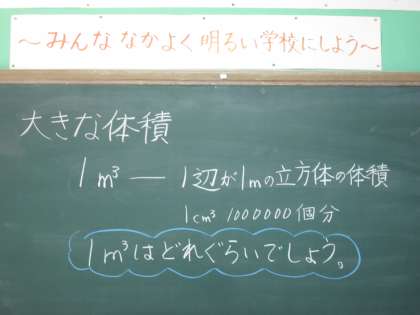 ~みんな なかよく 明るい学校にしよう~
大きな体積
1m³ — 1辺が1mの立方体の体積
1cm³ 1000000個分
1m³はどれぐらいでしょう。